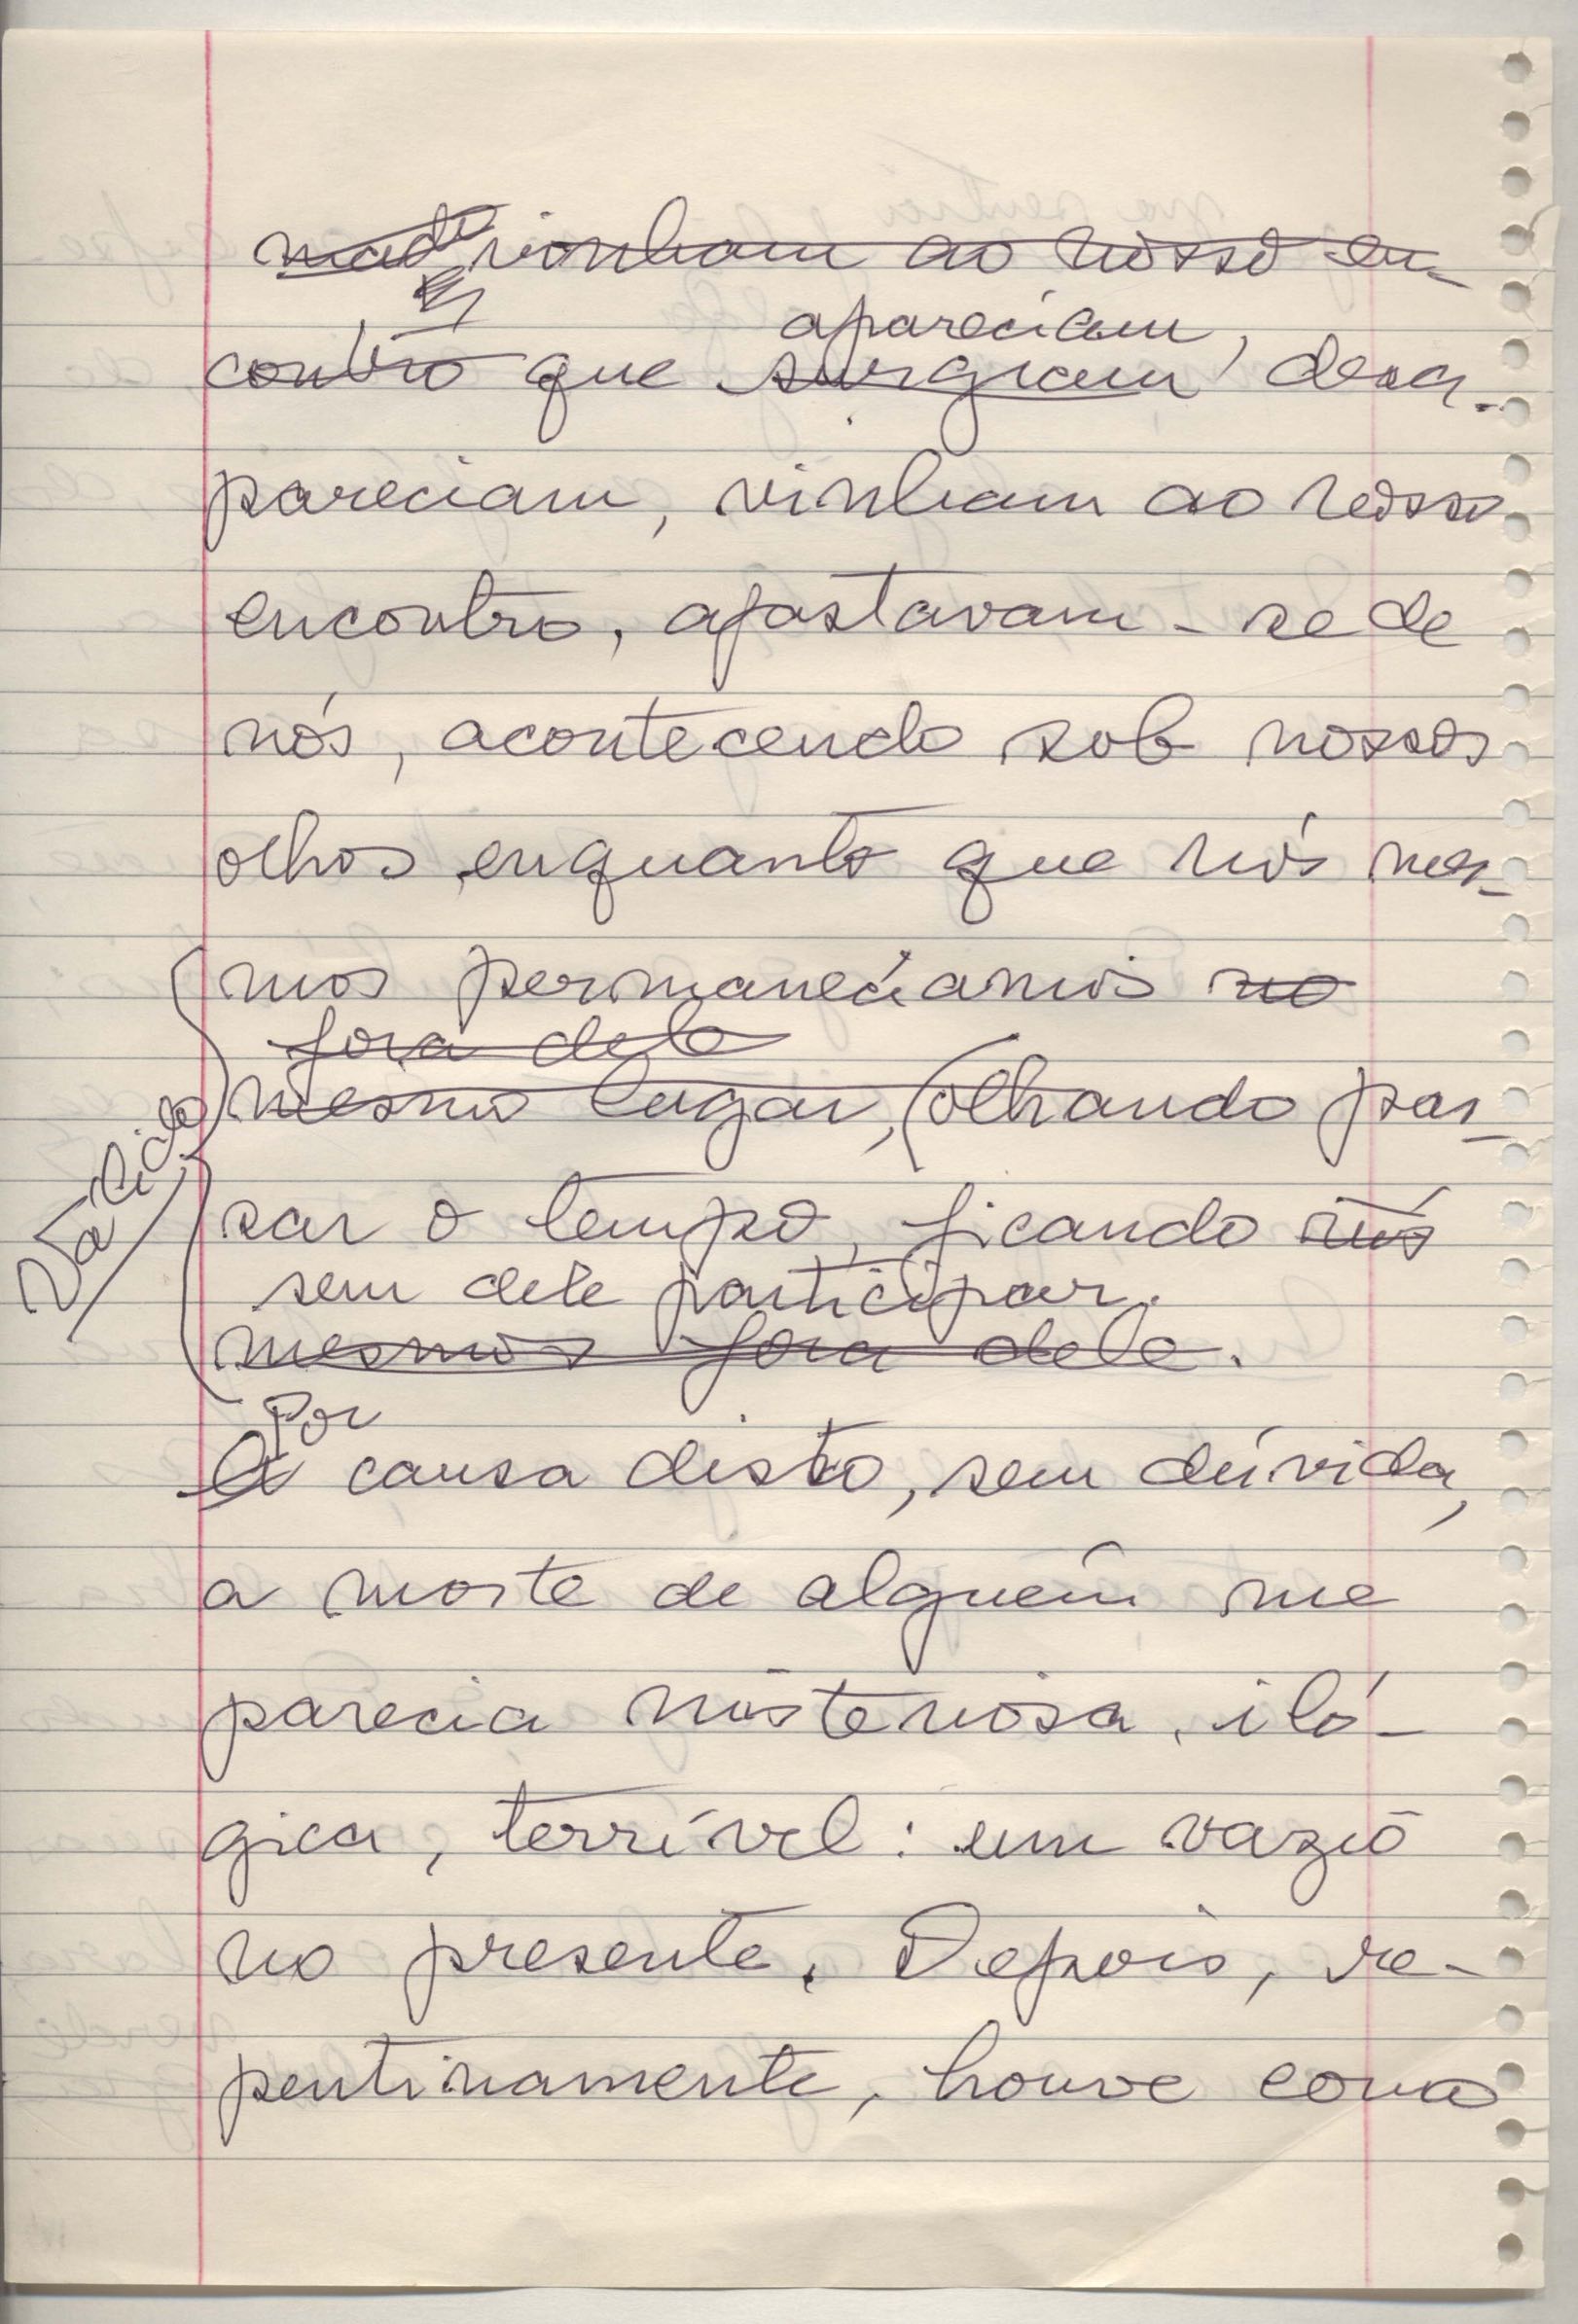 vinham ao nosso en-
apareciam,
contro que surgiam desa-
pareciam, vinham ao nosso
encontro, afastavam-se de
nós, acontecendo sob nossos
olhos, enquanto que nós mes-
mos permanecíamos no
fora dele
mesmo lugar, (olhando pas-
sar o tempo, ficando nós
sem dele participar.
mesmos fora dele.
Válido
Por
A causa disto, sem dúvida,
a morte de alguém me
parecia misteriosa, iló-
gica, terrível: um vazio
no presente. Depois, re-
pentinamente, houve como